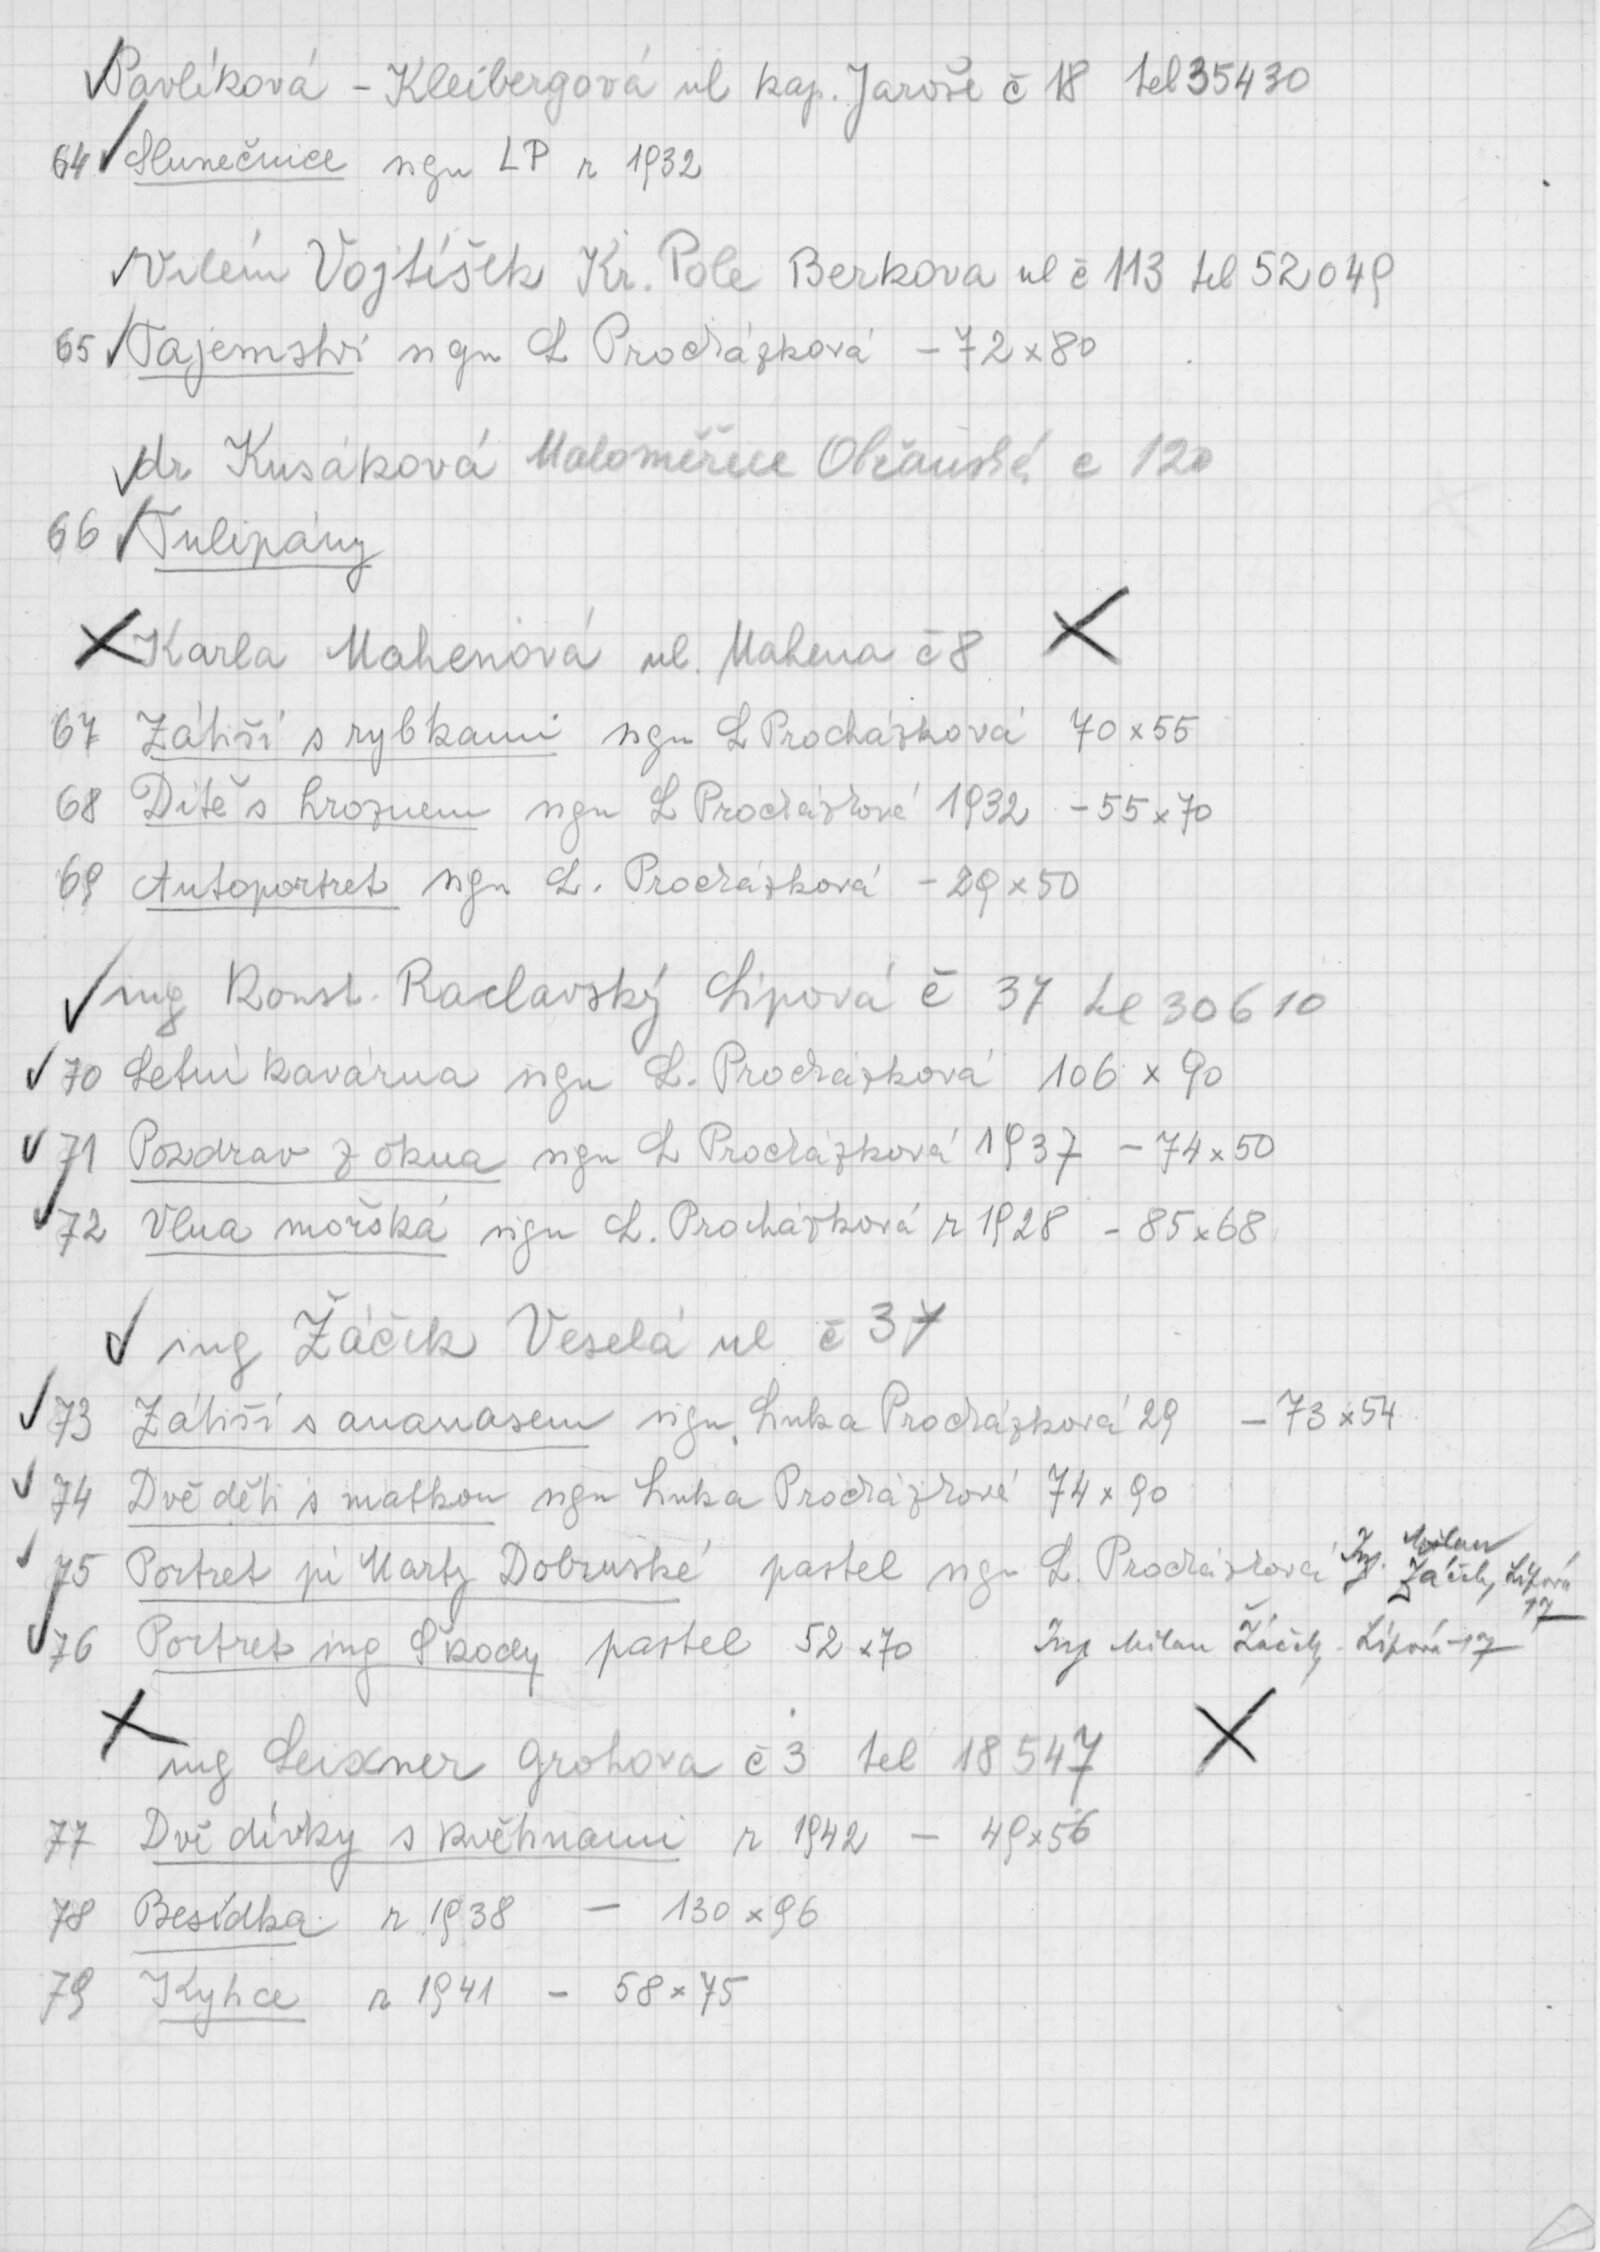 ✓Pavlíková - Kleibergová ul kap. Jaroše č 18 tel 35430
64 ✓ Slunečnice sign LP r 1932
✓Vilém Vojtíšek Kr. Pole Berkova ul č 113 tel 52049
65 ✓ Tajemství sign L Procházková - 72 x 80
✓dr Kusáková Maloměřice Obřanská č 120
66 ✓ Tulipány
X Karla Mahenová ul. Mahena č 8 X
67 Zátiší s rybkami sign L Procházková 70 x 55
68 Dítě s hroznem sign L Procházková 1932 - 55 x 70
69 Autoportret sign L. Procházková - 29 x 50
✓ ing Konst. Raclavský Lipová č 37 tel 30610
✓ 70 Letní kavárna sign L. Procházková 106 x 90
✓ 71 Pozdrav z okna sign L Procházková 1937 - 74 x 50
✓ 72 Vlna mořská sign L. Procházková r 1928 - 85 x 68
✓ ing Žáček Veselá ul č 37
✓ 73 Zátiší s ananasem sign. Linka Procházková 29 - 73 x 54
✓ 74 Dvě děti s matkou sign Linka Procházková 74 x 90
✓ 75 Portret pí Marty Dobruské pastel sign L. Procházková Ing. Milan Žáček, Lipová 17
✓ 76 Portret ing Škody pastel 52 x 70 Ing Milan Žáček - Lipová 17
X ing Leixner Grohova č 3 tel 18547 X
77 Dvě dívky s květinami r 1942 - 49 x 56
78 Besídka r 1938 - 130 x 96
79 Kytice r 1941 - 58 x 75